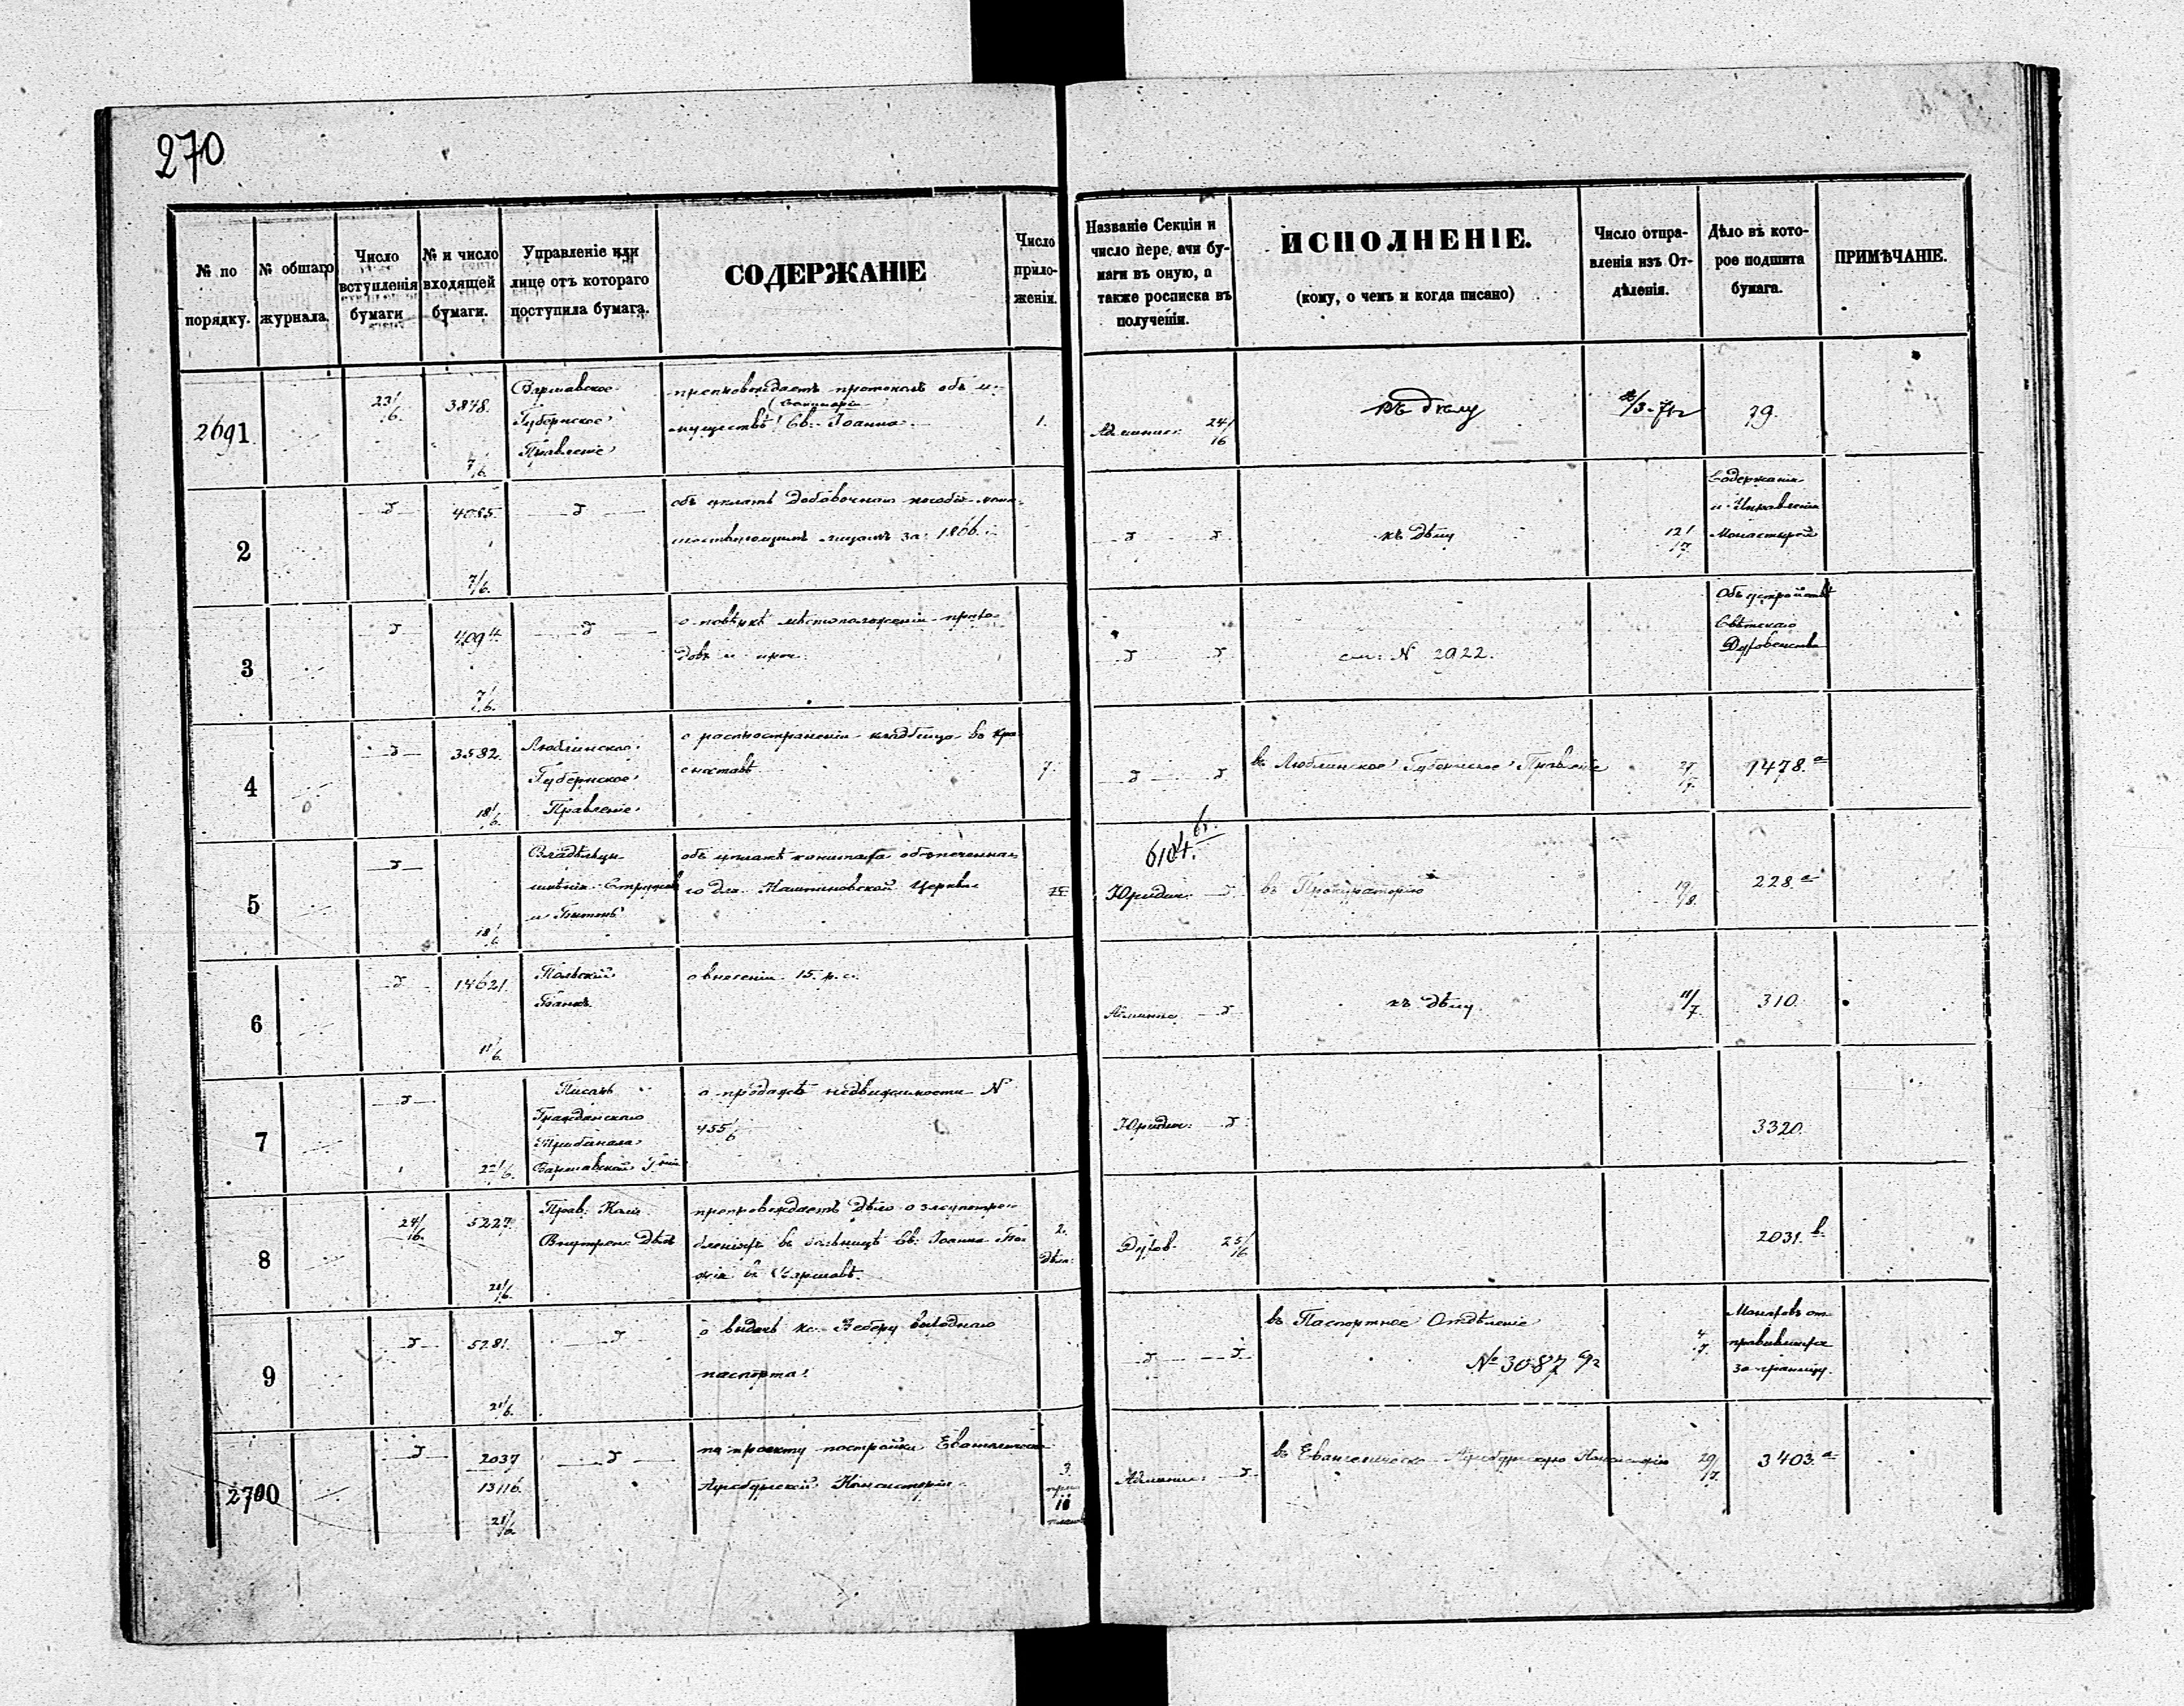 270
№ по порядку.
№ общаго журнала.
Число вступленія бумаги
№ и число входящей бумаги.
Управленіе или лице отъ котораго поступила бумага.
СОДЕРЖАНІЕ
Число приложеній.
Названіе Секціи и число передачи бумаги въ оную, а также росписка въ полученіи.
ИСПОЛНЕНІЕ.
(кому, о чемъ и когда писано)
Число отправленія изъ Отдѣленія.
Дѣло въ которое подшита бумага.
ПРИМѢЧАНІЕ.
2691
23/6.
3848.
7/6.
Варшавское
Губернское
Правленіе
препровождаетъ протоколъ объ и-
муществѣ Св. Іоанна.
1.
Админис. 24/6
къ дѣлу
79.
2
4085.
7/6.
объ уплатѣ добавочнаго пособія мона-
шествующимъ лицамъ за 1866.
къ дѣлу
12/7.
Содержанія
и Управленія
Монастырей
3
7/6.
мѣстоположеніи прихо-
довъ и проч.
см: N 2922.
Объ устройствѣ
Свѣтскаго
Духовенства
4
3582.
18/6.
Люблинское
Губернское
Правленіе
о распространеніи кладбища въ Кра-
сноставѣ
7.
въ Люблинское Губернское Правленіе
1478.а
5
18/6
Владѣльцы
имѣнія
объ уплатѣ капитала обезпеченна-
го для церкви
6104.
Юридич.
въ Прокураторію
19/8.
228.а
6
14621.
11/6.
Польскій
Банкъ
о внесеніи 15. р. с.
Админис.
къ дѣлу.
11/7.
310.
7
22/6.
Писарь
Гражданскаго
Трибунала
Варшавской Губніи
о продажѣ недвижимости N
455/6
Юридич.
3320.
8
24/6.
5227.
21/6.
Прав. Ком.
Внутрен. Дѣлъ
препровождаетъ дѣло о злоупотре-
бленіяхъ въ больницѣ Св. Іоанна Бо-
жія въ Варшавѣ.
2.
дѣла.
Духов. 25/6
2031.в.
9
5281.
21/6.
о выдачѣ кс. Веберу выѣзднаго
паспорта.
въ Паспортное Отдѣленіе
№ 3087
4/7.
Монаховъ от-
правившихся
за границу.
2700
2037
13116.
21/6
по проекту постройки Евангелическо
Аугсбургской Консисторіи
3.
Админис.
въ Евангелическо Аугсбургскую Консисторію
29/7.
3403.а